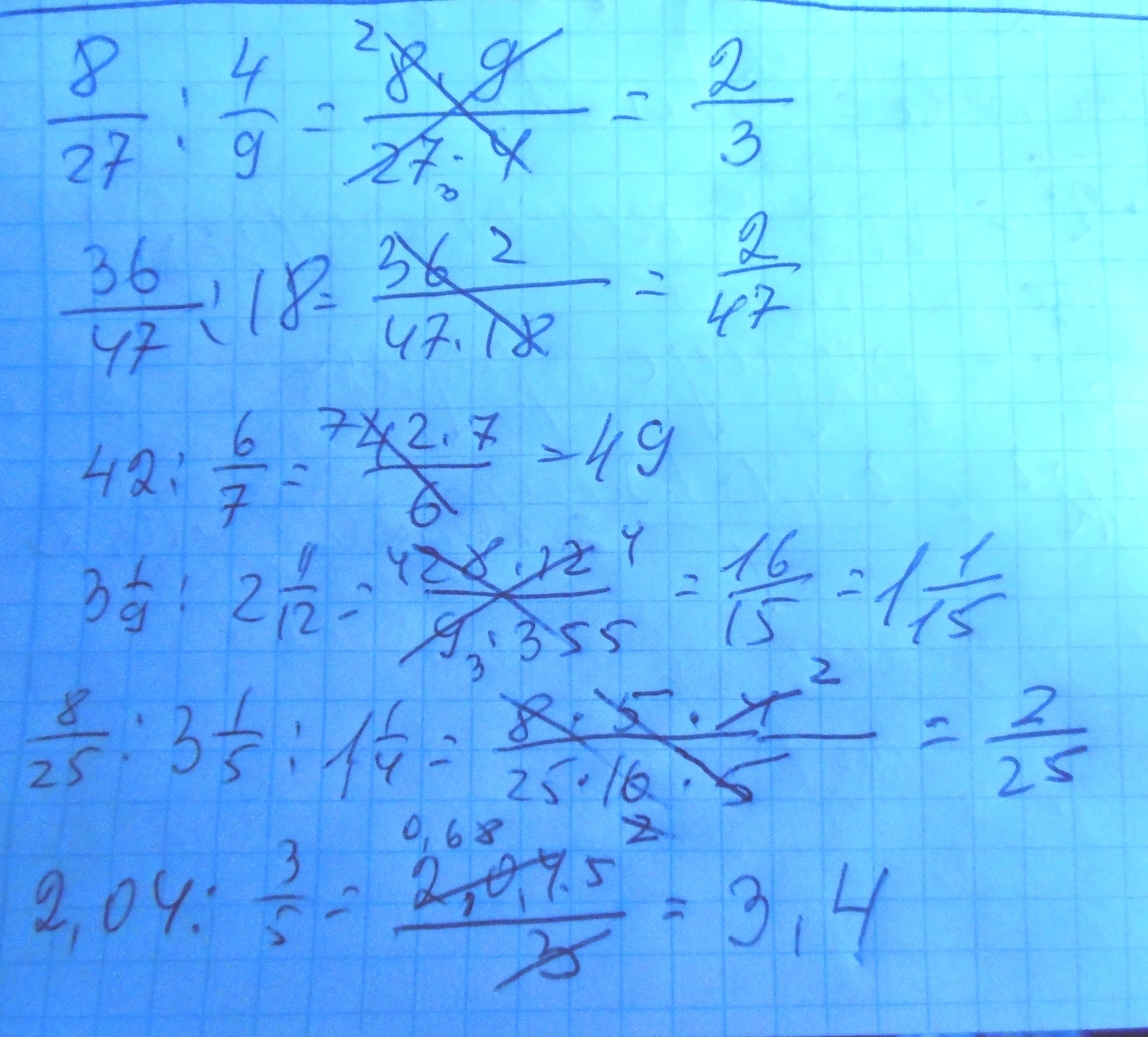 8/27 : 4/9 = 2 8 · 9 / 27 · 4 3 = 2/3
36/47 : 18 = 36 2 / 47 · 18 = 2/47
42 : 6/7 = 7 42 · 7 / 6 = 49
3 1/9 : 2 11/12 = 4 28 · 12 4 / 9 3 · 35 5 = 16/15 = 1 1/15
8/25 : 3 1/5 : 1 1/4 = 8 · 5 · 4 2 / 25 · 16 · 5 2 = 2/25
2,04 : 3/5 = 0,68 2,04 · 5 / 3 = 3,4